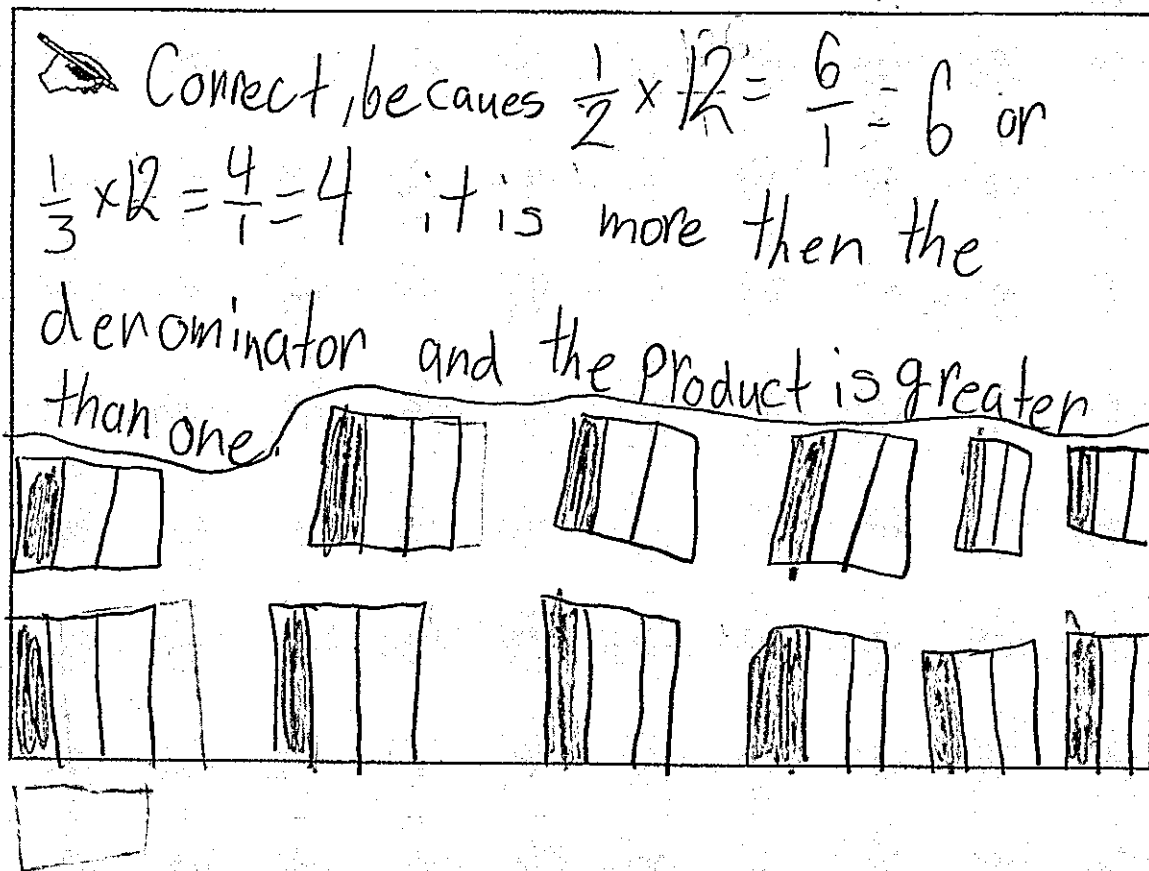 Correct, becaues 1/2 x 12 = 6/1 = 6 or
1/3 x 12 = 4/1 = 4 it is more then the
denominator and the product is greater
than one.